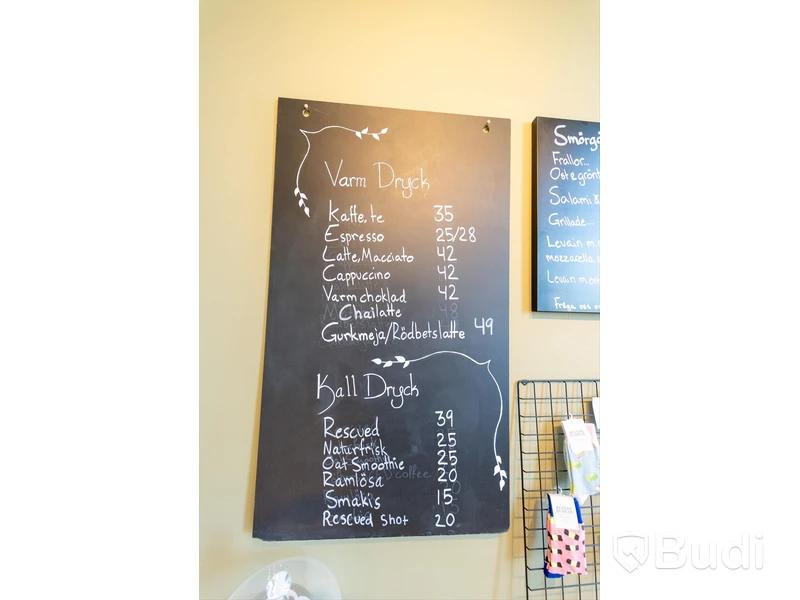 Varm Dryck
Kaffe, te 35
Espresso 25/28
Latte, Macciato 42
Cappuccino 42
Varm choklad 42
Chailatte
Gurkmeja/Rödbetslatte 49
Kall Dryck
Rescued 39
Naturfrisk 25
Oat Smoothie 25
Ramlösa 20
Smakis 15
Rescued Shot 20
Smörgå
Frallor...
Ost & grönt
Salami &
Grillade...
Levain m
mozzarella
Levain m
Fråga oss
Budi